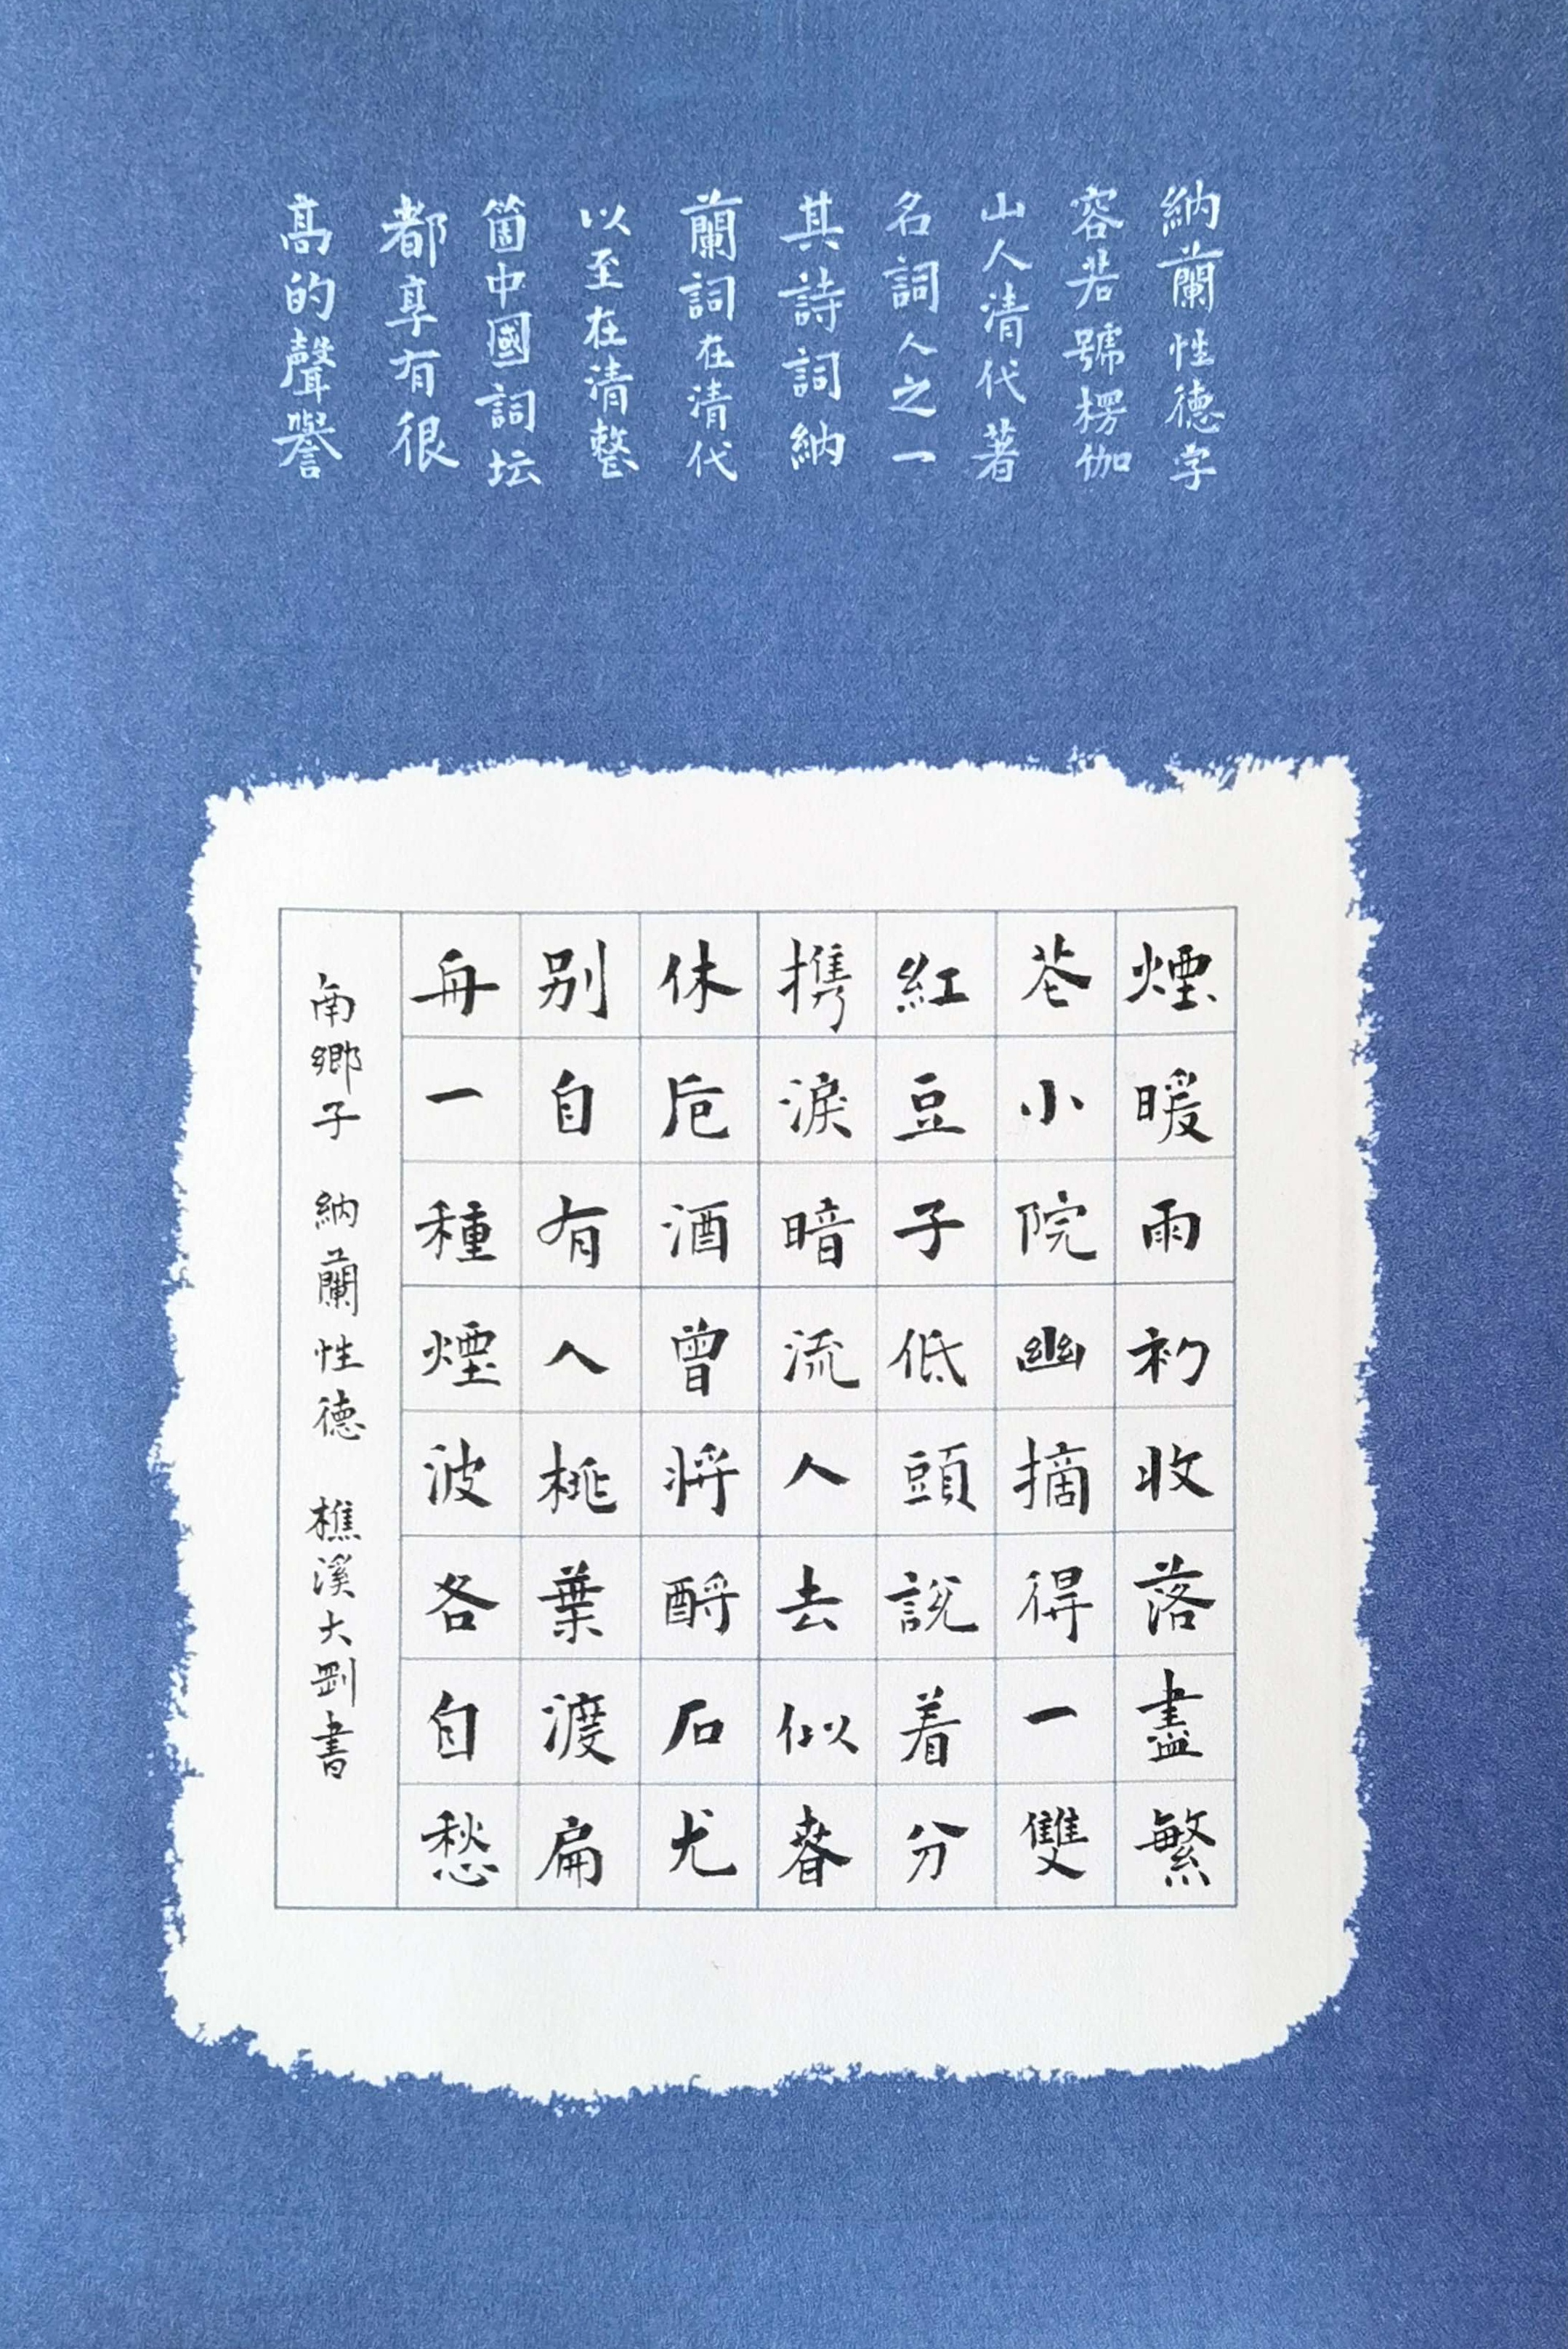 納蘭性德字
容若號楞伽
山人清代著
名詞人之一
其詩詞納
蘭詞在清代
以至在清整
箇中國詞坛
都享有很
高的聲譽
煙暖雨初收落盡繁
花小院幽摘得一雙
紅豆子低頭說着分
携淚暗流人去似春
休卮酒曾將酹石尤
別自有人桃葉渡扁
舟一種煙波各自愁
南鄉子 納蘭性德 樵溪大剛書